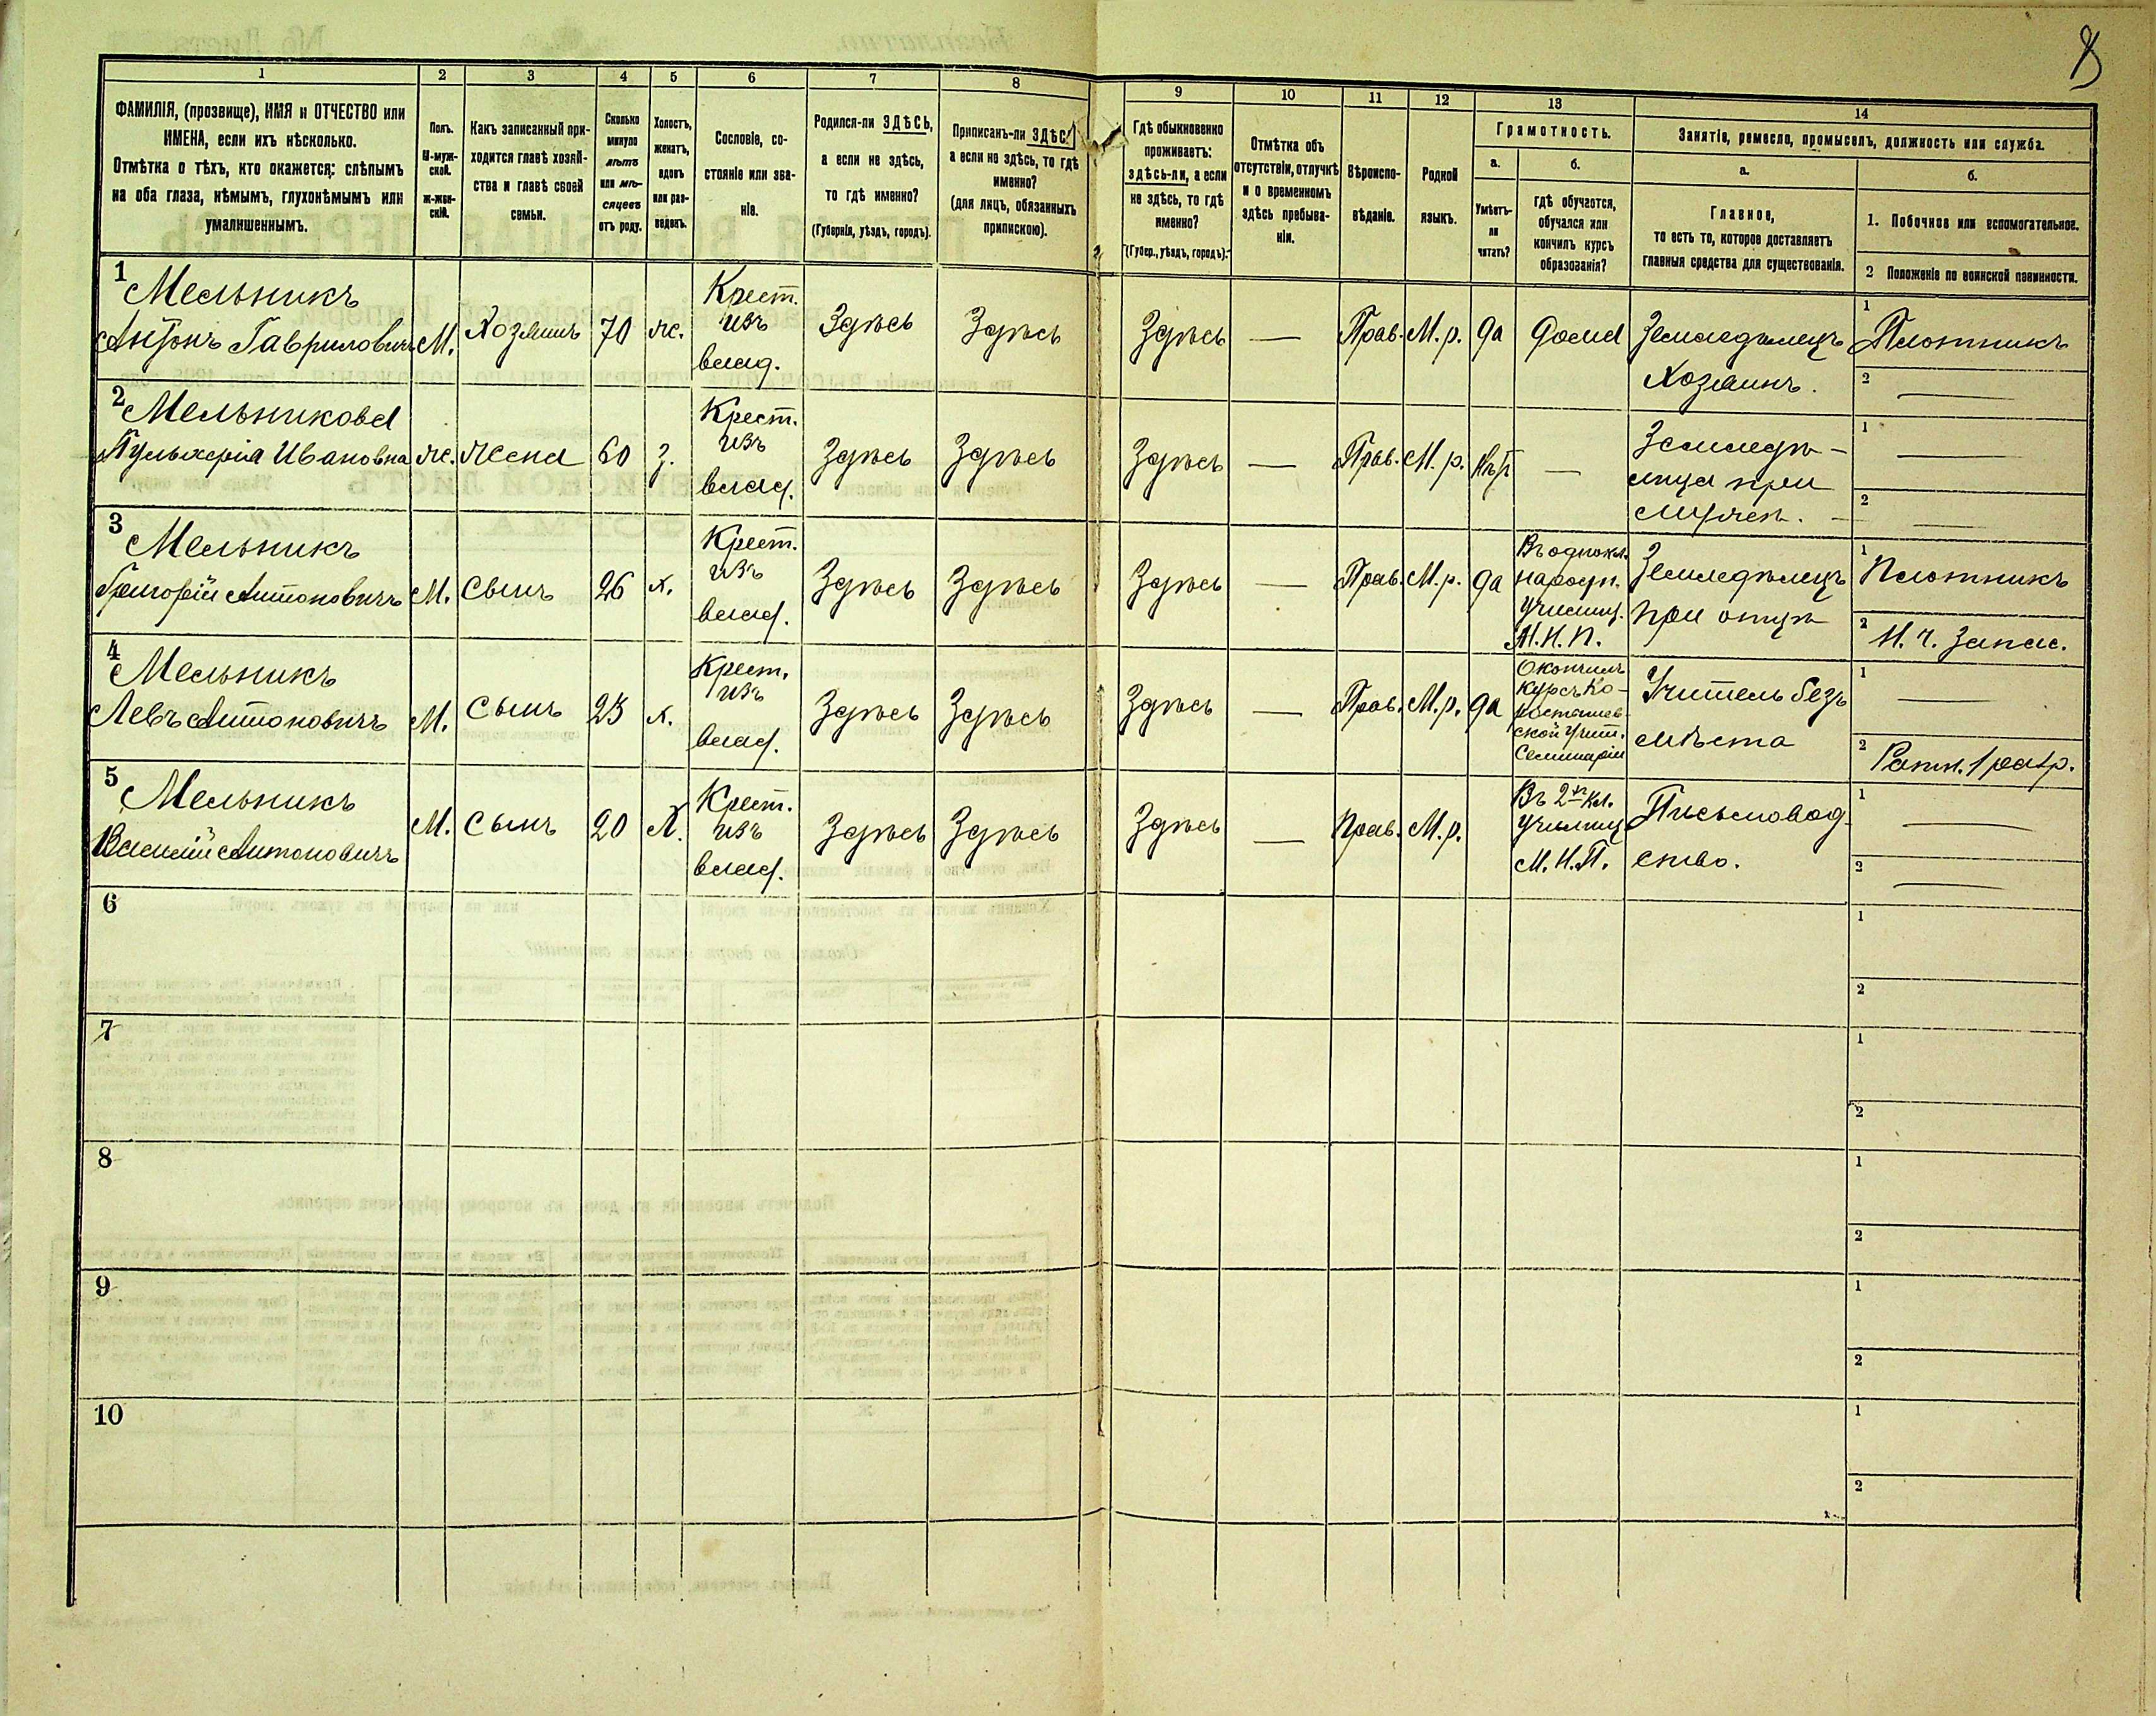 8
1 2 3 4 5 6 7 8 9 10 11 12 13 14
ФАМИЛІЯ, (прозвище), ИМЯ и ОТЧЕСТВО или
ИМЕНА, если ихъ нѣсколько.
Отмѣтка о тѣхъ, кто окажется: слѣпымъ
на оба глаза, нѣмымъ, глухонѣмымъ или
умалишеннымъ.
Полъ.
М-муж-
ской.
ж-жен-
скій.
Какъ записанный при-
ходится главѣ хозяй-
ства и главѣ своей
семьи.
Сколько
минуло
лѣтъ
или мѣ-
сяцевъ
отъ роду.
Холостъ,
женатъ,
вдовъ
или раз-
веденъ.
Сословіе, со-
стояніе или зва-
ніе.
Родился-ли ЗДѢСЬ,
а если не здѣсь,
то гдѣ именно?
(Губернія, уѣздъ, городъ).
Приписанъ-ли ЗДѢСЬ,
а если не здѣсь, то гдѣ
именно?
(для лицъ, обязанныхъ
припискою).
Гдѣ обыкновенно
проживаетъ:
здѣсь-ли, а если
не здѣсь, то гдѣ
именно?
(Губер., уѣздъ, городъ).
Отмѣтка объ
отсутствіи, отлучкѣ
и о временномъ
здѣсь пребыва-
ніи.
Вѣроиспо-
вѣданіе.
Родной
языкъ.
Грамотность.
а.
Умѣетъ-
ли
читать?
б.
гдѣ обучается,
обучался или
кончилъ курсъ
образованія?
Занятіе, ремесло, промыселъ, должность или служба.
а.
Главное,
то есть то, которое доставляетъ
главныя средства для существованія.
б.
1. Побочное или вспомогательное.
2 Положеніе по воинской повинности.
1 Мельникъ
Антонъ Гавриловичъ
М.
Хозяинъ
70
ж.
Крест.
изъ
влад.
Здѣсь
Здѣсь
Здѣсь
—
Прав.
М. р.
да
дома
Земледѣлецъ
Хозяинъ.
1 Плотникъ
2 —
2 Мельникова
Пульхерія Ивановна
ж.
Жена
60
з.
Крест.
изъ
влад.
Здѣсь
Здѣсь
Здѣсь
—
Прав.
М. р.
нѣт
—
Земледѣ-
лица при
мужѣ.
1 —
2 —
3 Мельникъ
Григорій Антоновичъ
М.
Сынъ
26
х.
Крест.
изъ
влад.
Здѣсь
Здѣсь
Здѣсь
—
Прав.
М. р.
да
Въ однокл.
народн.
училищ.
М. Н. П.
Земледѣлецъ
при отцѣ
1 Плотникъ
2 Н. ч. запас.
4 Мельникъ
Левъ Антоновичъ
М.
Сынъ
23
х.
Крест.
изъ
влад.
Здѣсь
Здѣсь
Здѣсь
—
Прав.
М. р.
да
Окончилъ
курсъ Ко-
ростышев-
ской учит.
Семинаріи
Учитель безъ
мѣста
1 —
2 Ратн. 1 разр.
5 Мельникъ
Василій Антоновичъ
М.
Сынъ
20
х.
Крест.
изъ
влад.
Здѣсь
Здѣсь
Здѣсь
—
Прав.
М. р.
Въ 2хъ кл.
училищ
М. Н. П.
Письмовод
ство.
1 —
2 —
6
1
2
7
1
2
8
1
2
9
1
2
10
1
2